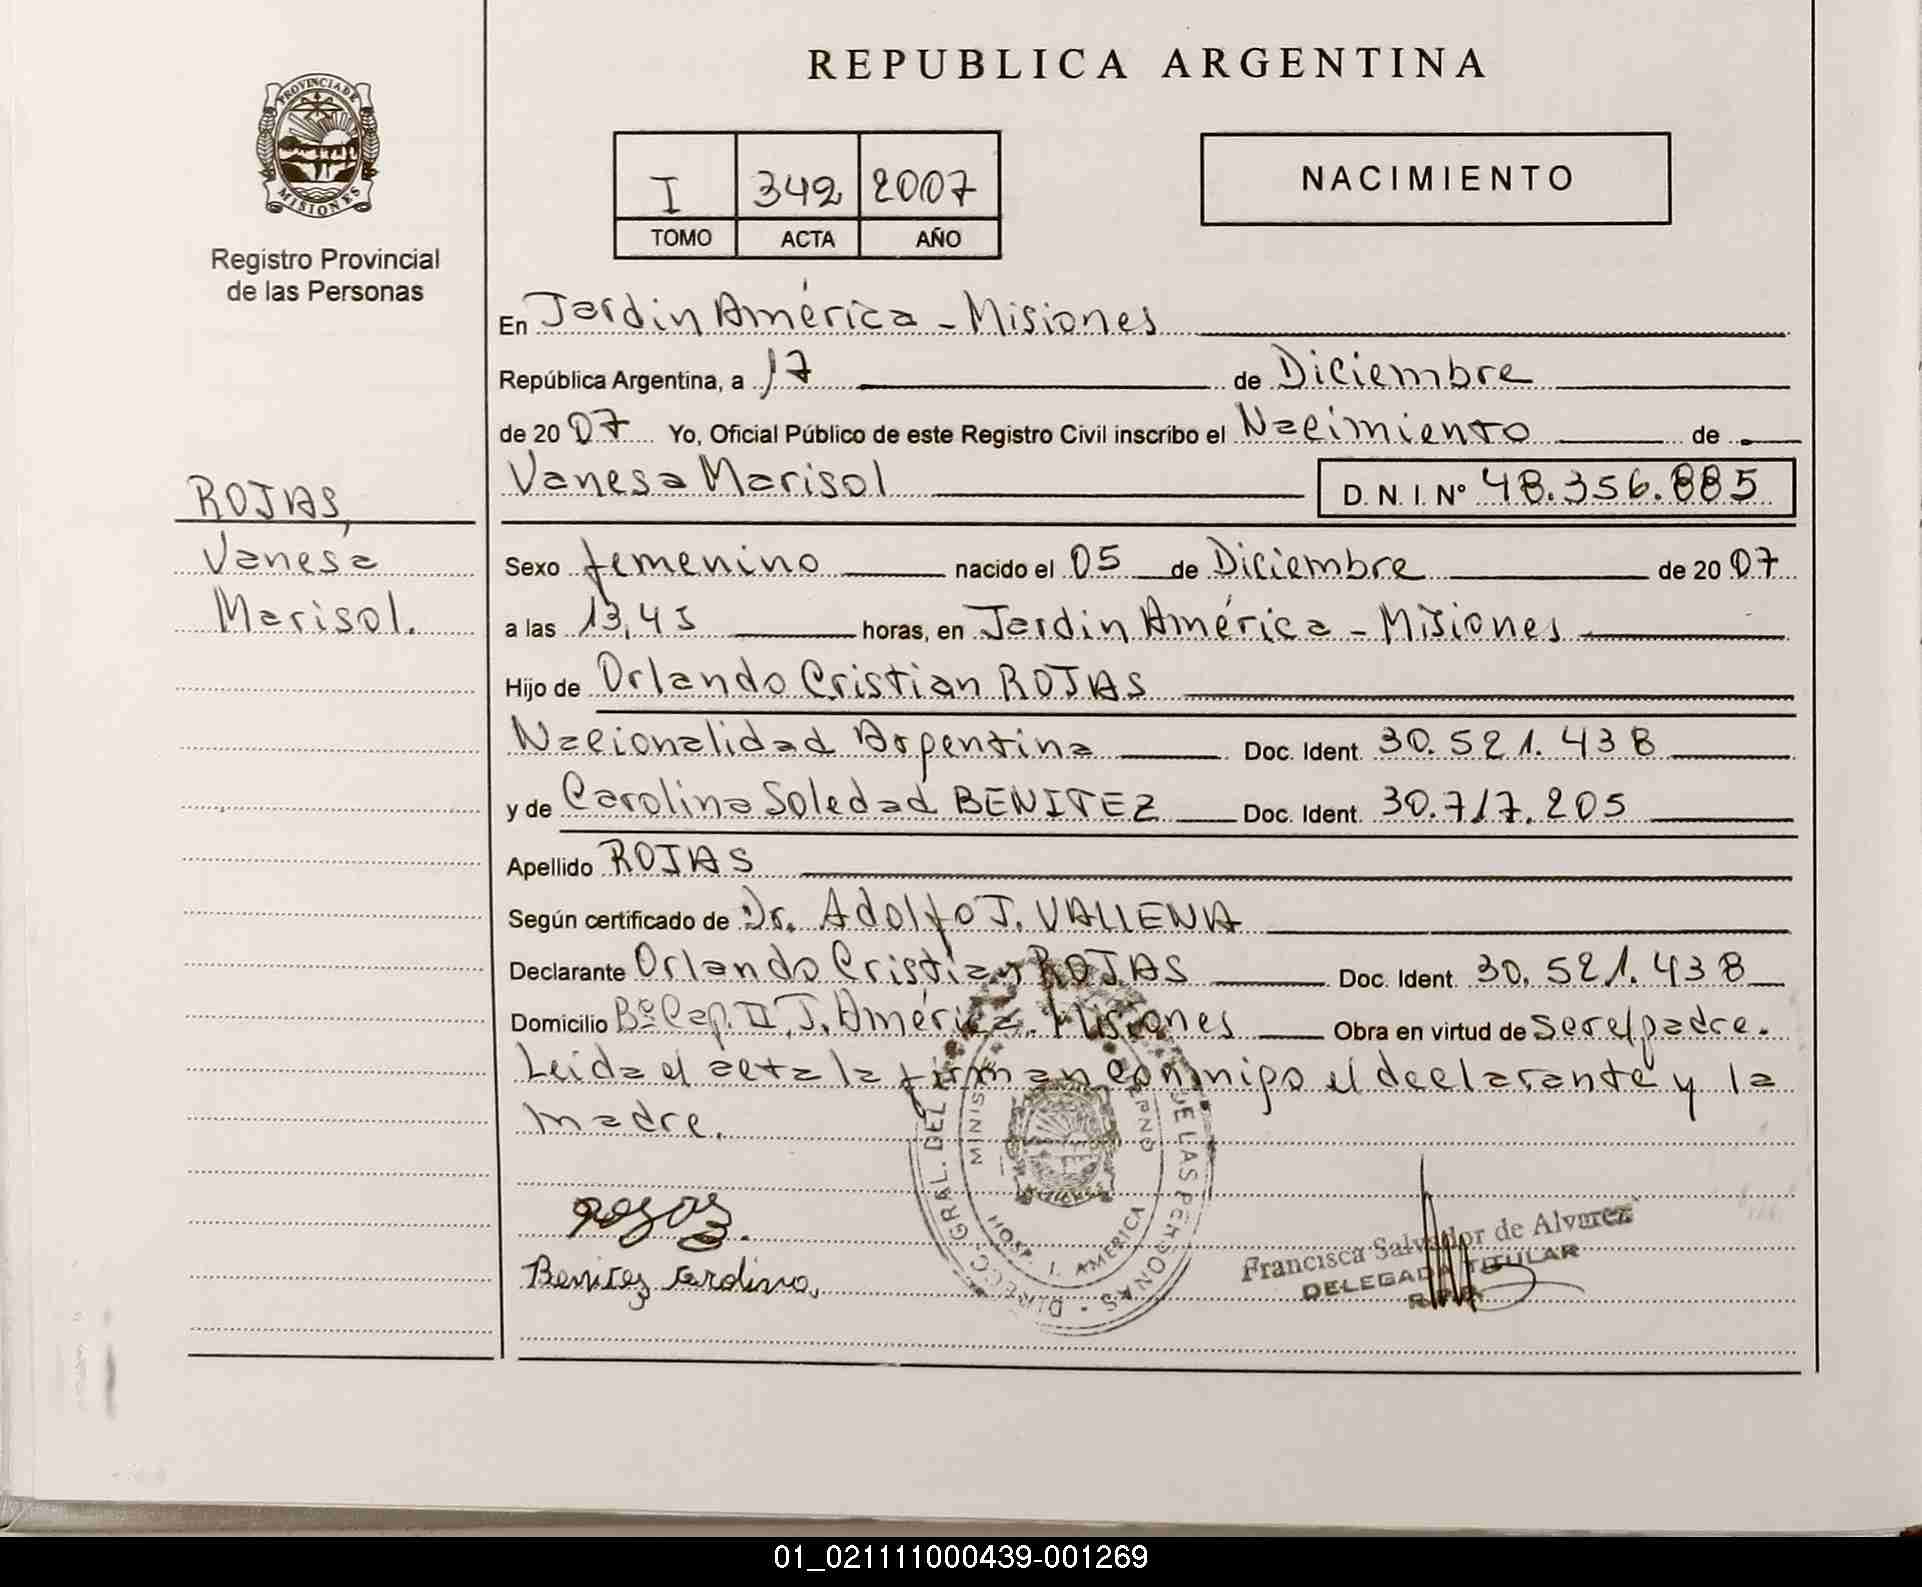 REPUBLICA ARGENTINA
PROVINCIA DE
MISIONES
Registro Provincial
de las Personas
I 342 2007
TOMO ACTA AÑO
NACIMIENTO
En Jardin América - Misiones
República Argentina, a 17 de Diciembre
de 20 07 Yo, Oficial Público de este Registro Civil inscribo el Nacimiento de
Vanesa Marisol D. N. I. Nº 48.356.885
ROJAS,
Vanesa
Marisol.
Sexo femenino nacido el 05 de Diciembre de 20 07
a las 13,45 horas, en Jardin América - Misiones
Hijo de Orlando Cristian ROJAS
Nacionalidad Argentina Doc. Ident. 30.521.438
y de Carolina Soledad BENITEZ Doc. Ident. 30.717.205
Apellido ROJAS
Según certificado de Dr. Adolfo J. VALLENA
Declarante Orlando Cristian ROJAS Doc. Ident. 30.521.438
Domicilio Bº Cap. II J. América. Misiones Obra en virtud de ser el padre.
Leida el acta la firman conmigo el declarante y la
madre.
Rojas
Benitez Carolina,
DIRECC. GRAL. DEL DE LAS PERSONAS
HOSP. J. AMERICA
Francisca Salvador de Alvarez
DELEGADA TITULAR
R.P.P.
01_021111000439-001269